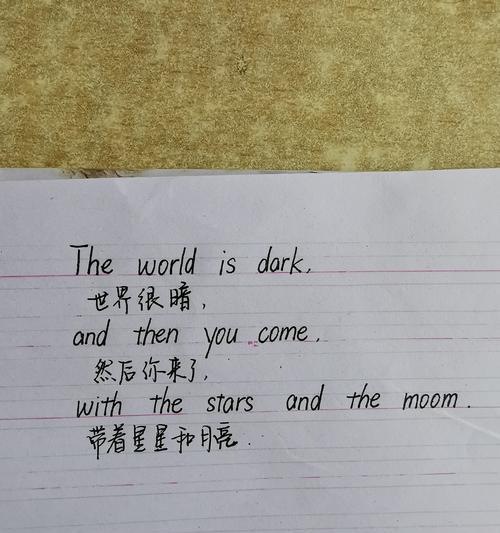 The world is dark,
世界很暗,
and then you come.
然后你来了,
with the stars and the moom.
带着星星和月亮.